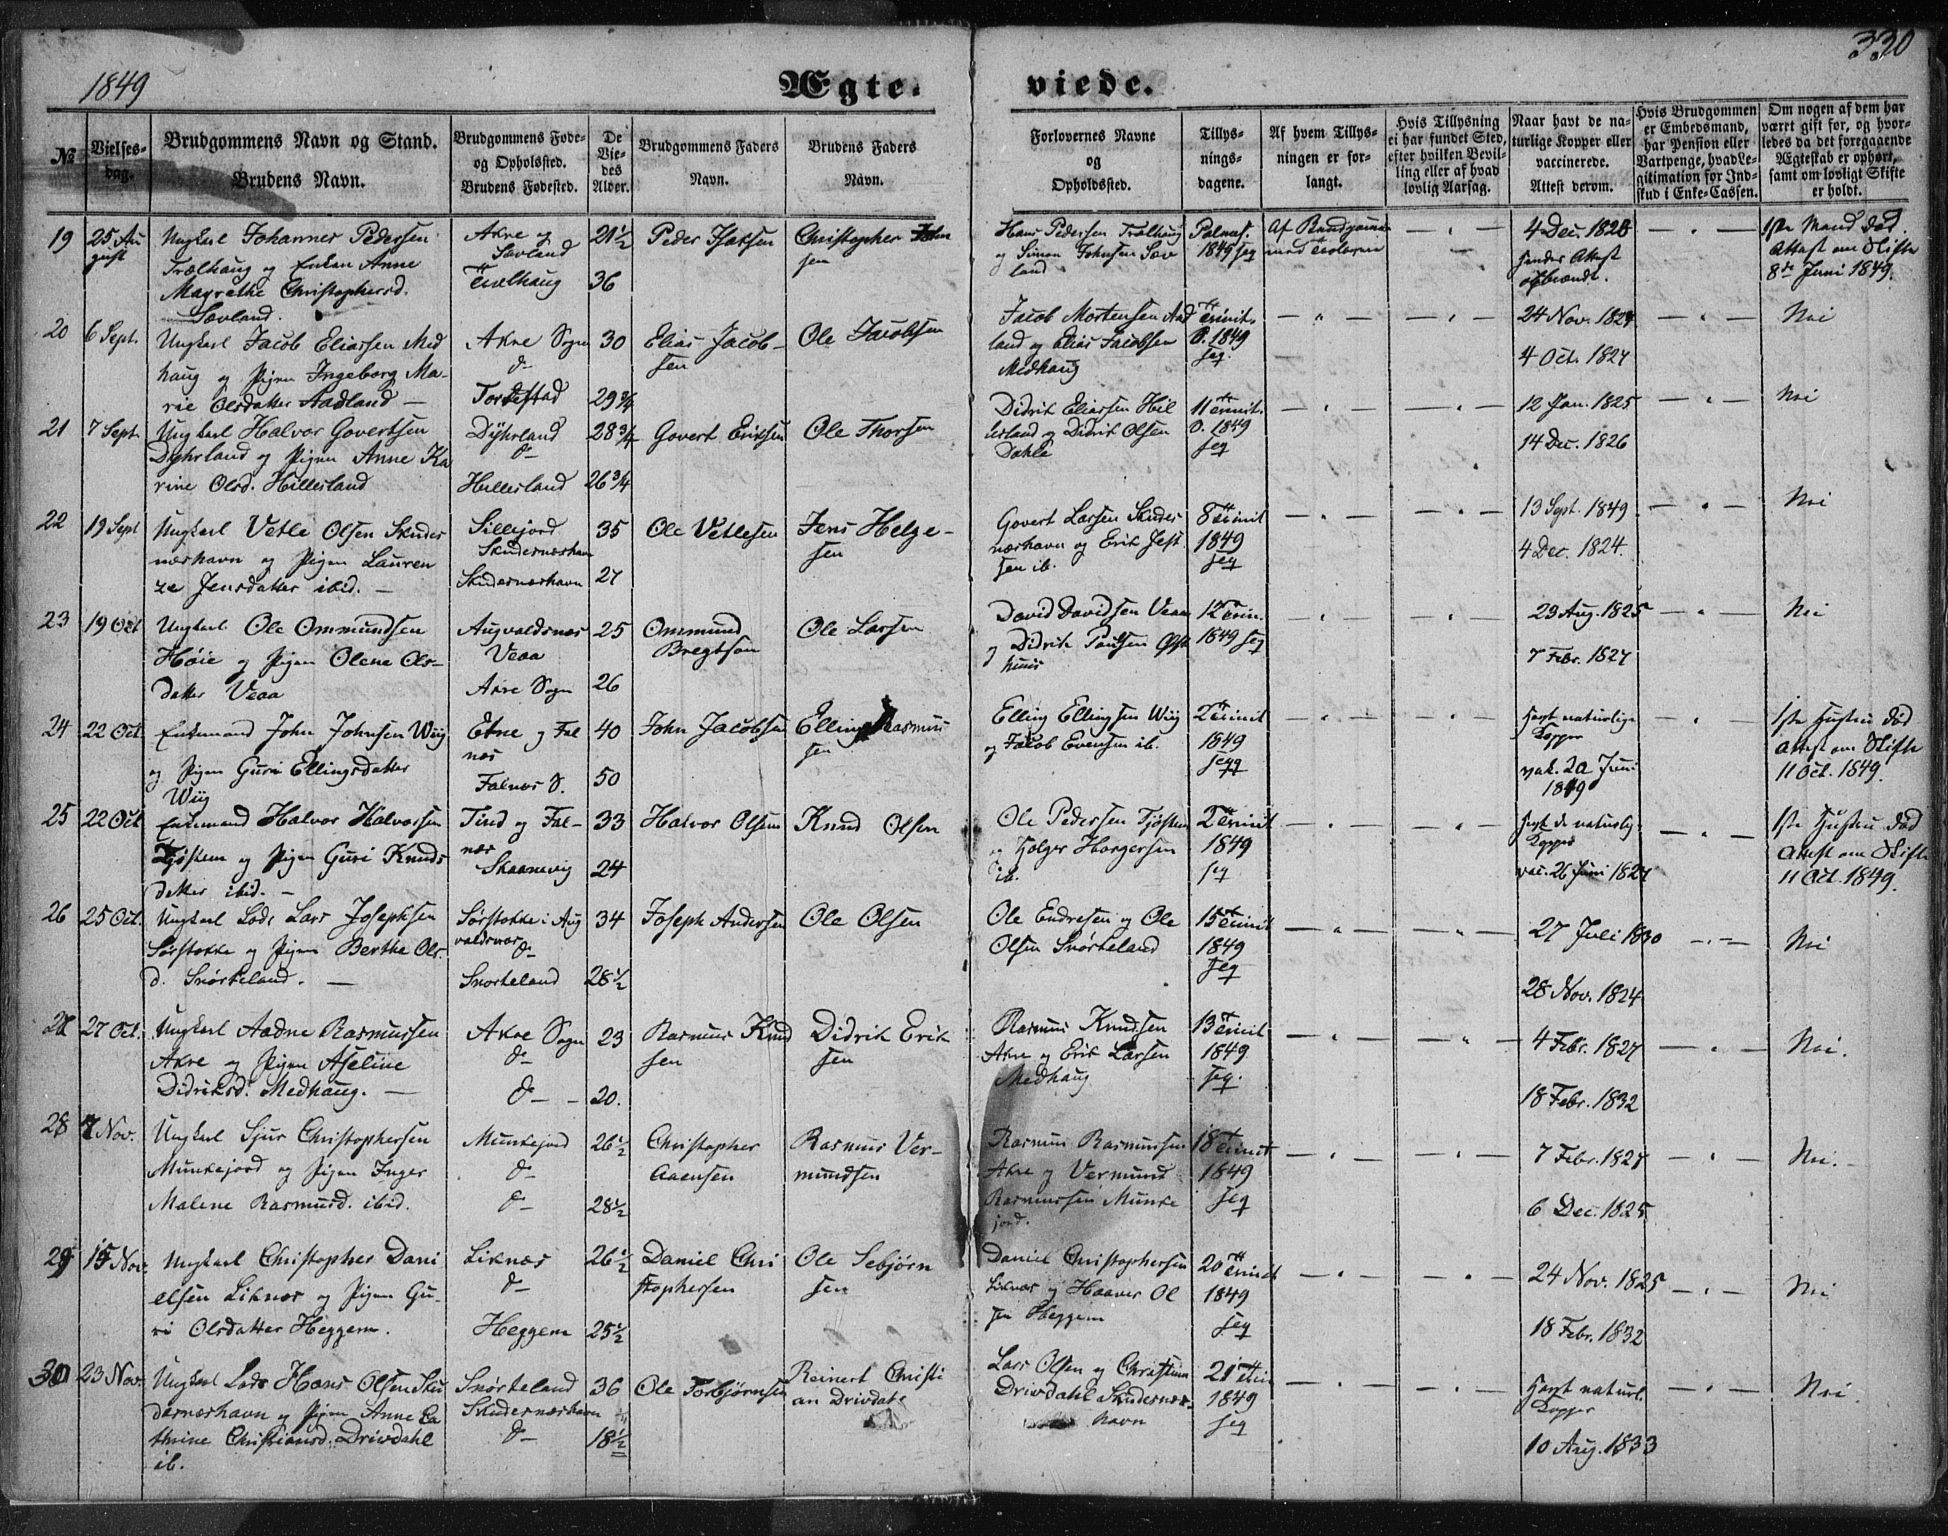 1849
330
Ægte-
viede.
№
Vielses-
dag.
Brudgommens Navn og Stand.
Brudens Navn.
Brudgommens Føde-
og Opholdssted.
Brudens Fødested.
De
Vie-
des
Alder.
Brudgommens Faders
Navn.
Brudens Faders
Navn.
Forlovernes Navne
og
Opholdssted.
Tillys-
nings-
dagene.
Af hvem Tillys-
ningen er for-
langt.
Hvis Tillysning
ei har fundet Sted,
efter hvilken Bevil-
ling eller af hvad
lovlig Aarsag.
Naar havt de na-
turlige Kopper eller
vaccinerede.
Attest derom.
Hvis Brudgommen
er Embedsmand,
har Pension eller
Vartpenge, hvad Le-
gitimation for Ind-
skud i Enke-Cassen.
Om nogen af dem har
været gift før, og hvor-
ledes da det foregaaende
Ægteskab er ophørt,
samt om lovligt Skifte
er holdt.
19
25 Au
gust
Ungkarl Johannes Pedersen
Trælhaug og Enken Anne
Magrethe Christophersd.
Sævland.
Akre og
Sævland
Trælhaug
21½
36
Peder
Christopher John
sen
Hans Pedersen Trælhaug
og Simon Johnsen Sæv
land
1849 seq
Af Brudgommen
med
4 Dec. 1828
hendes Attest
opbrændt.
1ste Mand død
Attest om Skifte
8de Juni 1849.
20
6 Sept.
Ungkarl Jacob Eliassen Med
haug og Pigen Ingeborg Ma-
rie Olsdatter Aadland —
Akre Sogn
do
Torvestad
30
29¾
Elias Jacob-
sen
Ole Jacobsen
Jacob Mortensen Aad
land og Elias Jacobsen
Medhaug
Trinit.
1849
seq.
24 Nov. 1824
4 Oct. 1827
Nei
21
7 Sept.
Ungkarl Halvor Govertsen
Dyhrland og Pigen Anne Ka
rine Olsd. Hillesland
Dyhrland
do
Hillesland
28¾
26¾
Govert Eriksen
Ole Thorsen
Didrik Eliassen Hil
lesland og Didrik Olsen
Dahle
11 Trinit.
1849
seq
12 Jan. 1825
14 Dec. 1826
Nei
22
19 Sept
Ungkarl Vetle Olsen Skudes
næshavn og Pigen Lauren
ze Jensdatter ibid. —
Sillejord
Skudesnæshavn
Skudesnæshavn
35
27
Ole Vetlesen
Jens Helge-
sen
Govert Larsen Skudes
næshavn og Erik Jest
sen ib.
8 Trinit
1849
seq
13 Sept. 1849
4 Dec. 1824.
Nei
23
19 Oct
Ungkarl Ole Ommundsen
Høie og Pigen Olene Ols-
datter Veaa
Augvaldsnæs
Veaa
Akre Sogn
25
26
Ommund
Bregtson
Ole Larsen
David Davidsen Veaa
og Didrik Paulsen Øst
huus
12 Trin.
1849 seq
23 Aug. 1825
7 Febr. 1827
Nei
24
22 Oct.
Enkemand John Johnsen Wiig
og Pigen Guri Ellingsdatter
Wiig
Etne og Fal
næs
Falnæs S.
40
50
John Jacobsen
Elling Rasmus
sen
Elling Ellingsen Wiig
og Jacob Evensen ib.
2 Trinit
1849
seqq
havt naturlige
Kopper
vac. 20 Juni
1849
1ste Hustru død
Attest om Skifte
11 Oct. 1849.
25
22 Oct
Enkemand Halvor Halvorsen
Tjøstem og Pigen Guri Knuds
datter ibid. —
Tind og Fal-
næs
Skaanevig
33
24
Halvor Olsen
Knud Olsen
Ole Pedersen Tjøstem
og Holger Hargersen
ib.
2 Trinit
1849
seq
havt de naturlig
Kopper
vac. 26 Juni 1827
1ste Hustru død
Attest om Skifte
11 Oct. 1849.
26
25 Oct.
Ungkarl Lods Lars Josephsen
Sørstokke og Pigen Berthe Ols-
d. Snørteland. —
Sørstokke i Aug
valdsnæs
do
Snorteland
34
28½
Joseph Andersen
Ole Olsen
Ole Endresen og Ole
Olsen Snørteland
15 Trinit
1849
seq
27 Juli 1830
28 Nov. 1824
Nei
27
27 Oct.
Ungkarl Aadne Rasmussen
Akre og Pigen Aseline
Didriksd. Medhaug. —
Akre Sogn
do
do —
23
20.
Rasmus Knud
sen
Didrik Erik
sen
Rasmus Knudsen
Akre og Erik Larsen
Medhaug
13 Trinit
1849
seq.
4 Febr. 1827
18 Febr. 1832
Nei.
28
7 Nov.
Ungkarl Sjur Christophersen
Munkejord og Pigen Inger
Malene Rasmusd. ibid.
Munkejord
do
do
26½
28½
Christopher
Aaensen
Rasmus Ver-
mundsen
Rasmus Rasmussen
Akre og Vermund
Rasmussen Munke
jord.
18 Trinit
1849
seq
7 Febr. 1827
6 Dec. 1825
Nei.
29
15 Nov.
Ungkarl Christopher Dani
elsen Liknæs og Pigen Gu-
ri Olsdatter Heggem.
Liknæs
do
Heggem
26½
25½
Daniel Chri
stophersen
Ole Sebjørn
sen
Daniel Christophersen
Liknæs og Haaver Ol
sen Heggem
20 Trinit
1849
seq
24 Nov. 1825
18 Febr. 1832
Nei
30
23 Nov.
Ungkarl Lods Hans Olsen Sku
desnæshavn og Pigen Anne Ca
thrine Christiansd. Drivdahl
ib.
Snørteland
Skudesnæshavn
do
36
18½
Ole Torbjørnsen
Reinert Christi
an Drivdahl
Lars Olsen og Christian
Drivdahl Skudesnæs-
havn
21 Trin
1849
seq
havt naturl.
Kopper
10 Aug. 1833
Nei